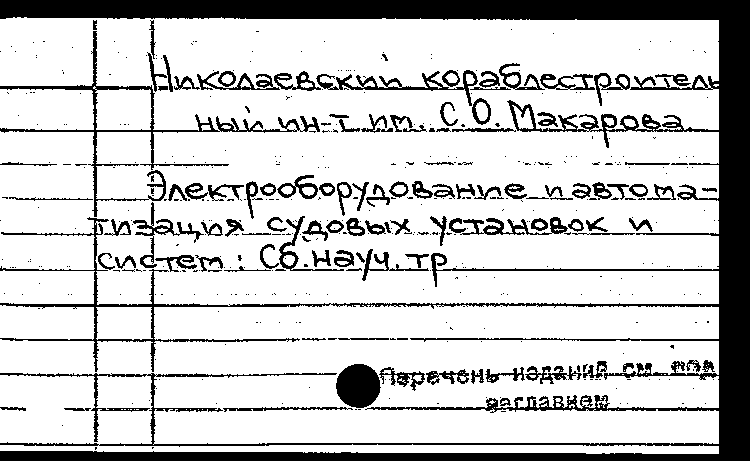 Николаевский кораблестроитель
ный ин-т им. С.О. Макарова
Электрооборудование и автома-
тизация судовых установок и
систем : Сб. науч. тр
Перечень изданий см. под
заглавием